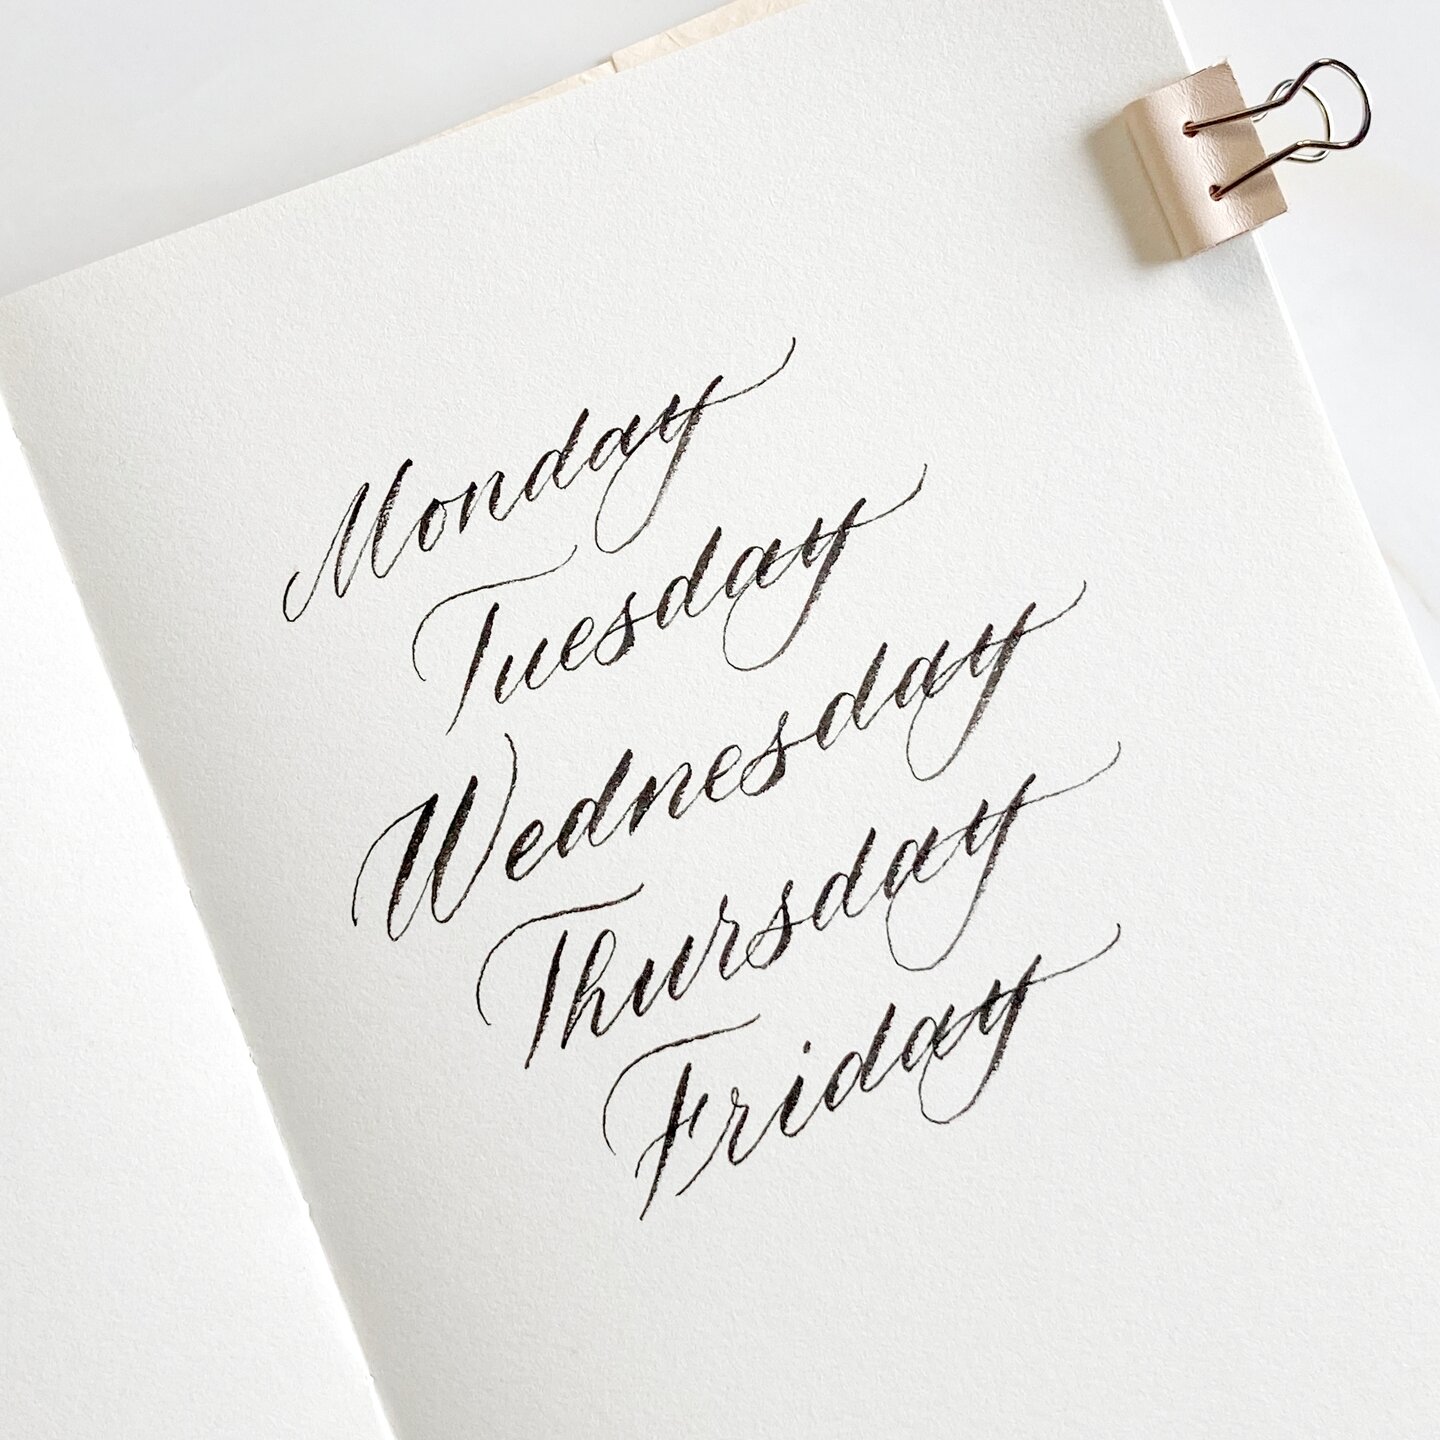 Monday
Tuesday
Wednesday
Thursday
Friday